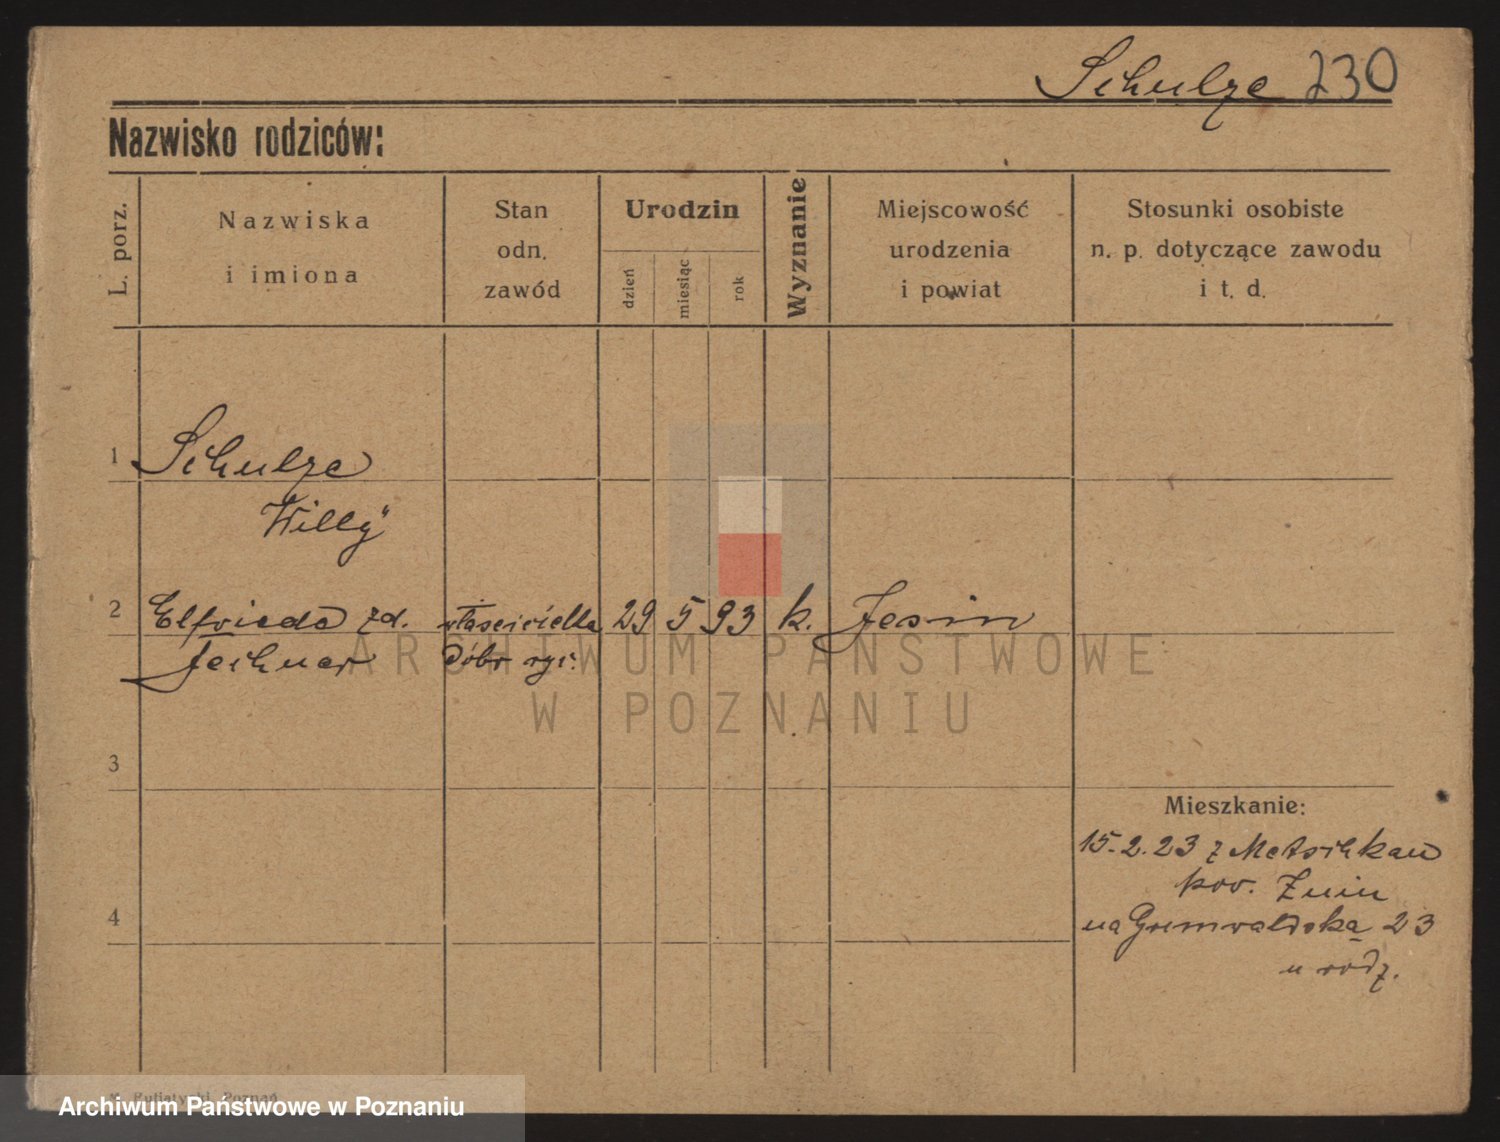 Schulze 230
Nazwisko rodziców:
L. porz.
Nazwiska
i imiona
Stan
odn.
zawód
Urodzin
dzień
miesiąc
rok
Wyznanie
Miejscowość
urodzenia
i powiat
Stosunki osobiste
n. p. dotyczące zawodu
i t. d.
1 Schulze
Willy
2 Elfrieda zd. właścicielka 29 5 93 k. Jesin
Fechner dóbr ryc.
ARCHIWUM PAŃSTWOWE
W POZNANIU
3
Mieszkanie:
15.2.23 z
pow. Żnin
4
na Grunwaldska 23
u rodz.
Poznań
Archiwum Państwowe w Poznaniu